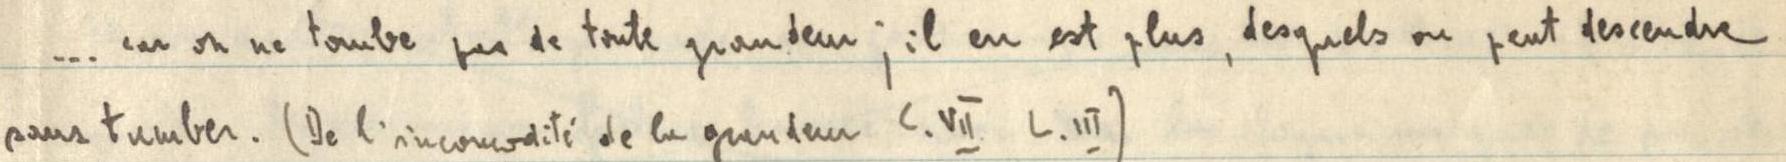 ... car on ne tombe pas de toute grandeur ; il en est plus, desquels on peut descendre
sans tumber. (De l'incomodité de la grandeur C. VII L. III)